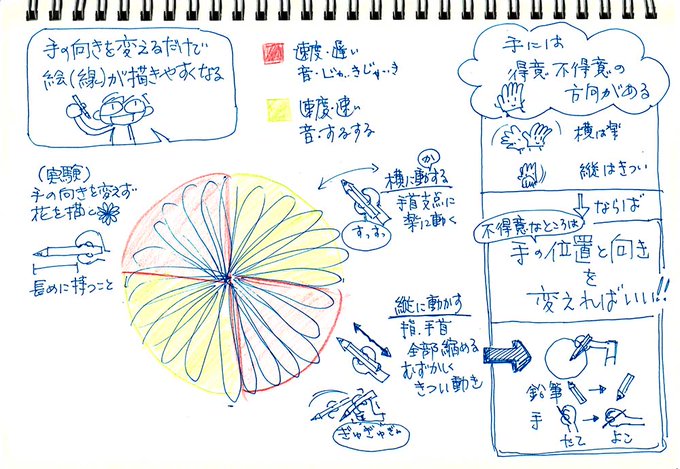 手の向きを変えるだけで
絵(線)が描きやすくなる
速度・遅い
音・じゃっきじゃっき
速度・速い
音・するする
(実験)
手の向きを変えず
花を描く
長めに持つこと
横に動かする
手首支点に
楽に動く
すっすっ
縦に動かす
指、手首
全部縮める
むずかしく
きつい動き
ぎゅぎゅぎゅ
手には
得意・不得意の
方向がある
横は楽
縦はきつい
ならば
不得意なところは
手の位置と向き
を
変えればいい!!
鉛筆
手
たて
よこ